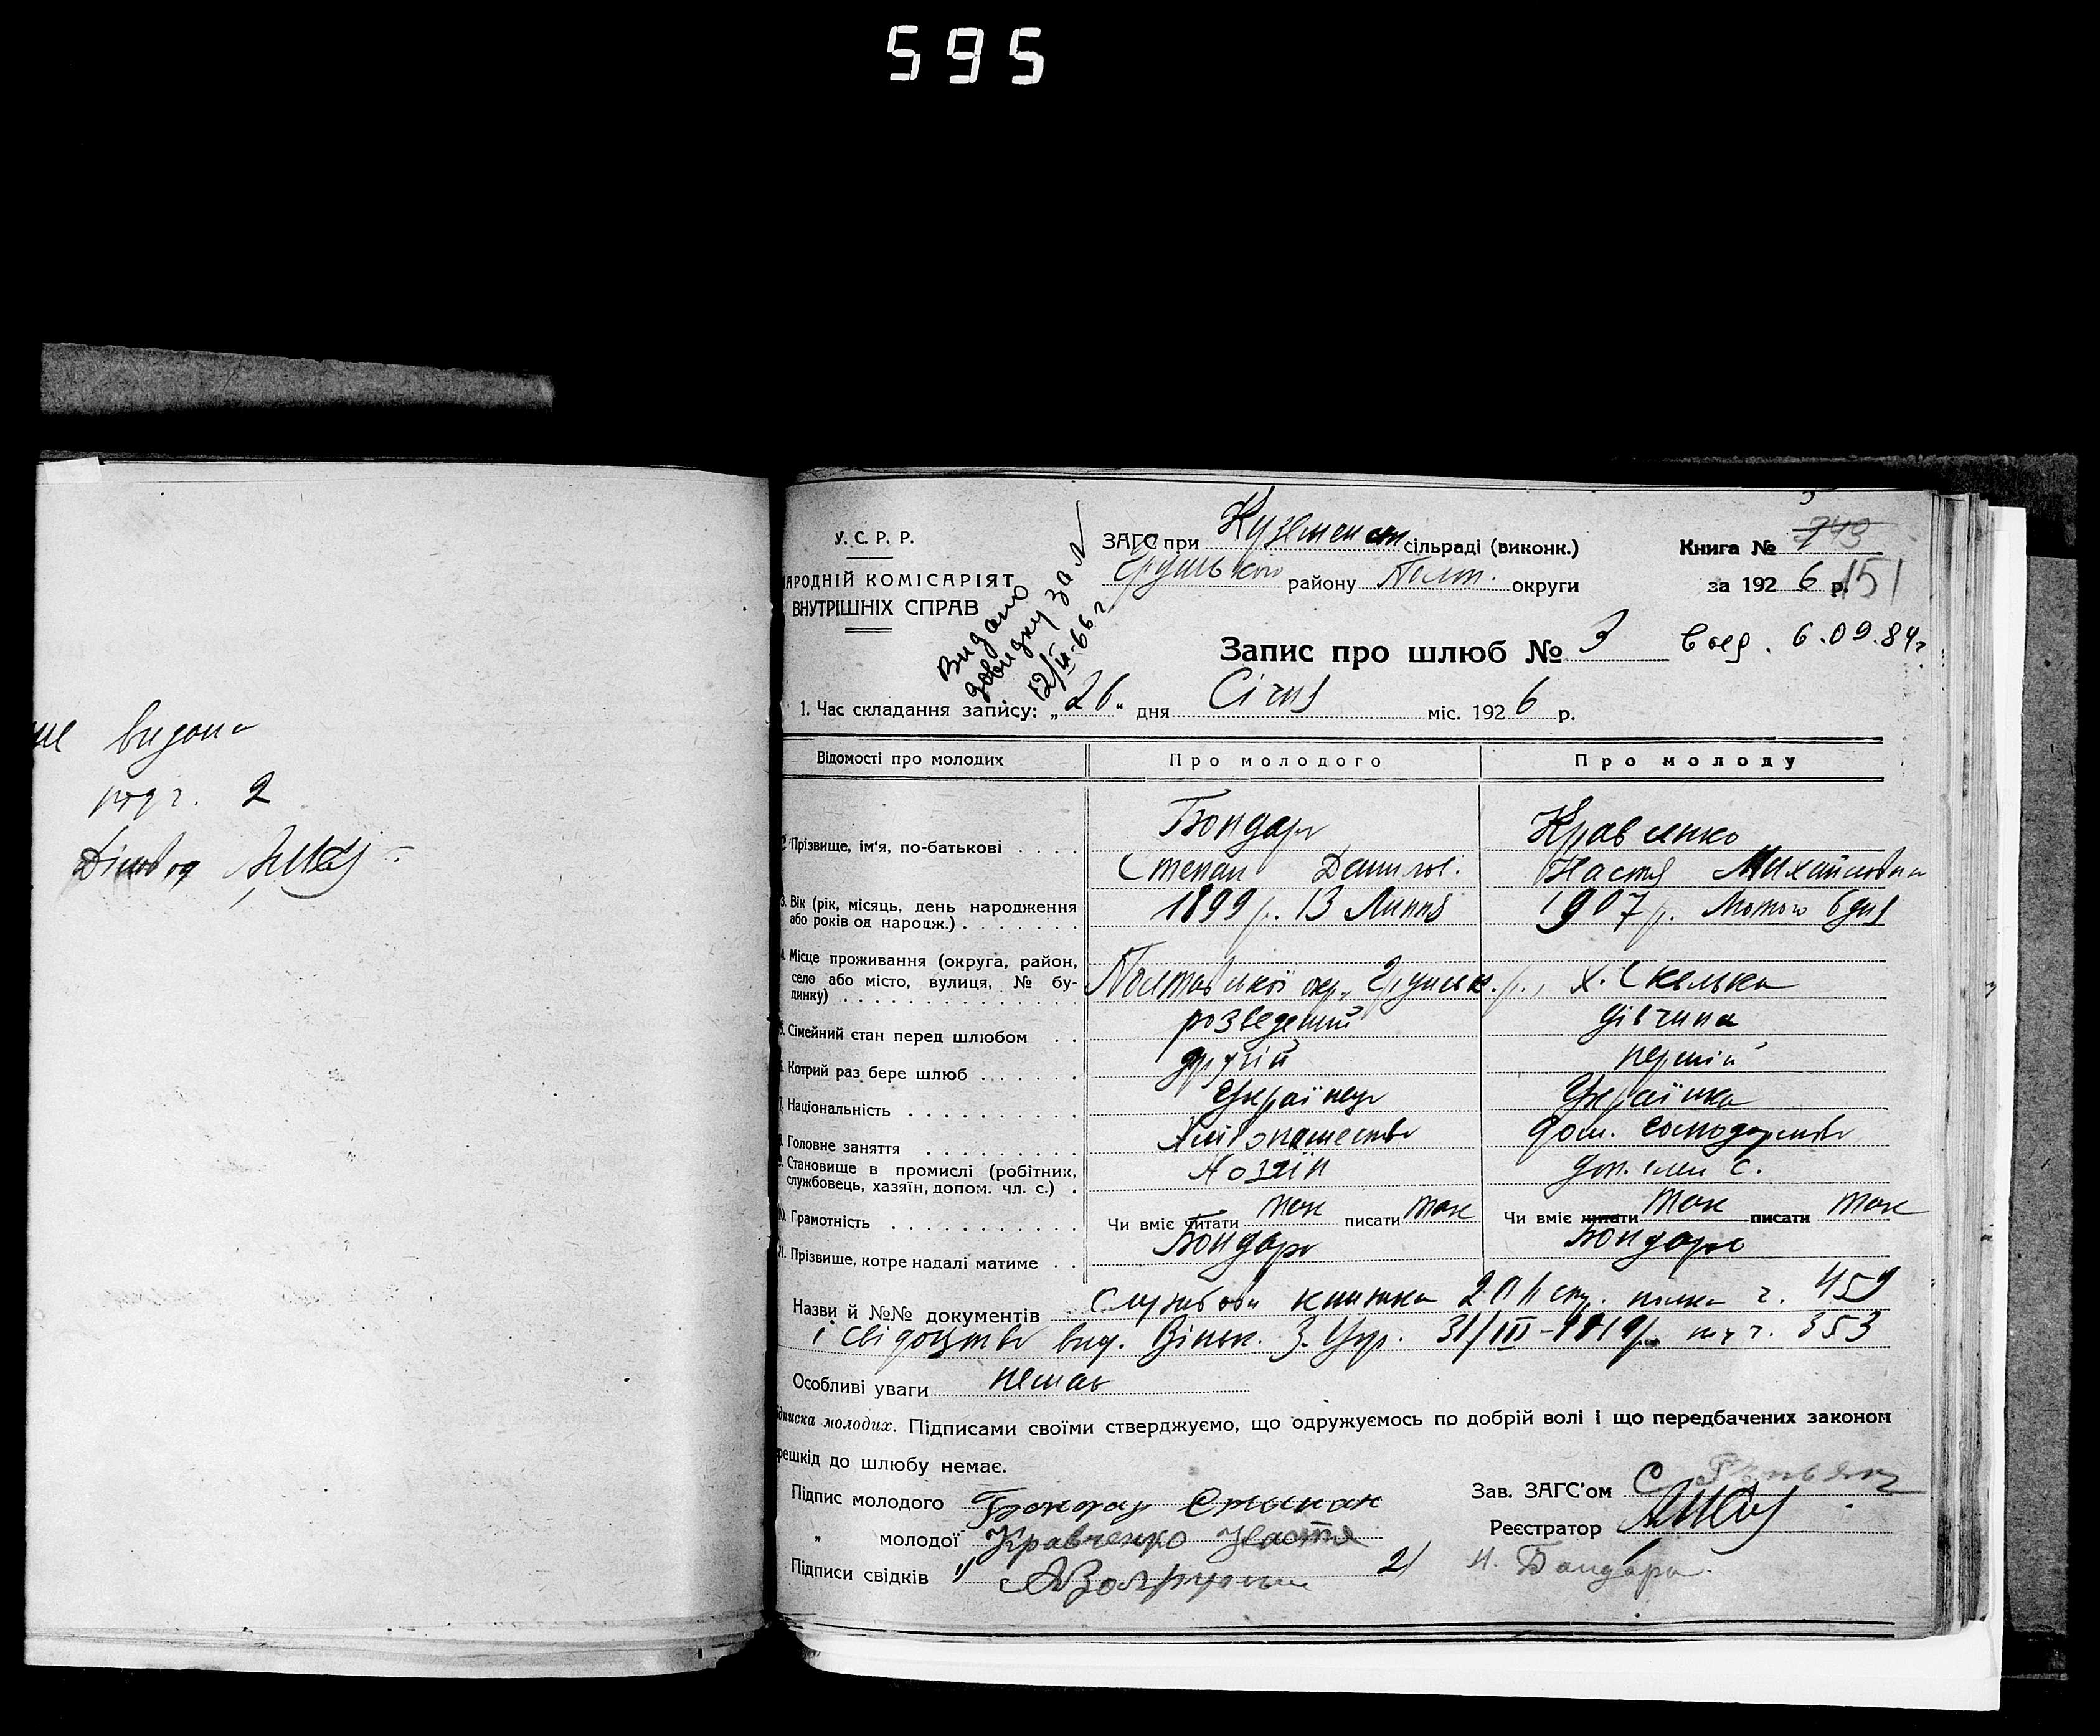 595
видана
2
У. С. Р. Р.
АРОДНІЙ КОМІСАРІЯТ
ВНУТРІШНІХ СПРАВ
Видано
довідку за №
12/II-66 г
ЗАГС при сільраді (виконк.)
району Полт. округи
Книга № 743
за 1926 р.
151
Запис про шлюб № 3
6.09.84г.
1. Час складання запису: „26" дня Січня міс. 1926 р.
Відомості про молодих
Про молодого
Про молоду
2. Прізвище, ім'я, по-батькові . . . .
Бондарь
Степан Данилов.
Кравченко
Настя Михайловна
3. Вік (рік, місяць, день народження
або років од народж.) . . . . . . .
1899 р. 13 Липня
1907 р. Лютого 6 дня
4. Місце проживання (округа, район,
село або місто, вулиця, № бу-
динку) . . . . . . . . . . . . . .
Полтавської окр., Грунськ. р., х. Скелька
5. Сімейний стан перед шлюбом . .
розведений
дівчина
6. Котрий раз бере шлюб . . . . . .
другий
перший
7. Національність . . . . . . . . . .
Українець
Українка
8. Головне заняття . . . . . . . . .
Хліборобство
дом. господарство
9. Становище в промислі (робітник,
службовець, хазяїн, допом. чл. с.) .
Хозяїн
доп. член с.
10. Грамотність . . . . . . . . . . .
Чи вміє читати так писати так
Чи вміє читати так писати так
11. Прізвище, котре надалі матиме . .
Бондарь
Бондарь
Назви й №№ документів Службова книжка полка ч. 459
і свідоцтво вид. 31/III-1919р. ч. 353
Особливі уваги немає
ідписка молодих. Підписами своїми стверджуємо, що одружуємось по добрій волі і що передбачених законом
решкід до шлюбу немає.
Підпис молодого Бондар Степан
Зав. ЗАГС'ом
„ молодої Кравченко Настя
Реєстратор
Підписи свідків 1)
2) Н. Бондарь